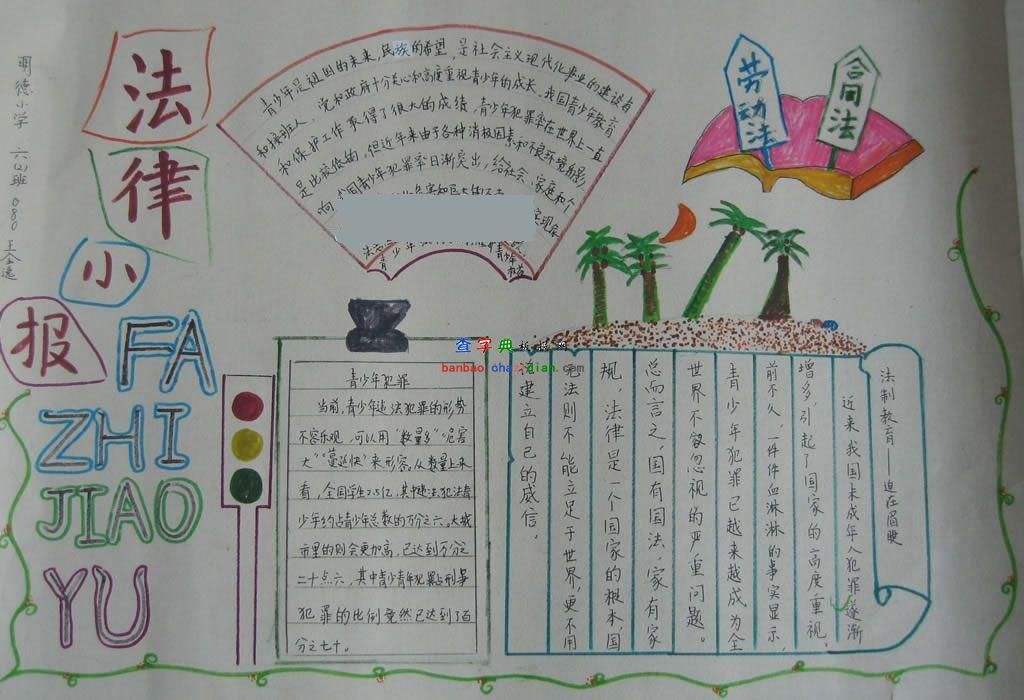 法
律
小
报
FA
ZHI
JIAO
YU
明德小学 六(2)班 080 王金逸
青少年是祖国的未来,民族的希望,是社会主义现代化事业的建设者
和接班人。党和政府十分关心和高度重视青少年的成长。我国青少年教育
和保护工作取得了很大的成绩,青少年犯罪率在世界上一直
是比较低的,但近年来由于各种消极因素和不良环境的影
响 我国青少年犯罪率日渐突出,给社会、家庭和个
劳动法
合同法
查字典
banbao.chazidian.com
青少年犯罪
当前,青少年违法犯罪的形势
不容乐观,可以用"数量多""危害
大""蔓延快"来形容。从数量上来
看,全国学生2.5亿,其中违法犯罪青
少年约占青少年总数的万分之六。大城
市里的则会更加高,已达到万分之
二十点六,其中青少青年犯罪占刑事
犯罪的比例竟然已达到了百
分之七十。
法制教育——迫在眉睫
近来我国未成年人犯罪逐渐
增多,引起了国家的高度重视,
前不久,一件件血淋淋的事实显示,
青少年犯罪已越来越成为全
世界不容忽视的严重问题。
总而言之,国有国法,家有家
规。法律是一个国家的根本,国
无法则不能立足于世界,更不用
建立自己的威信。